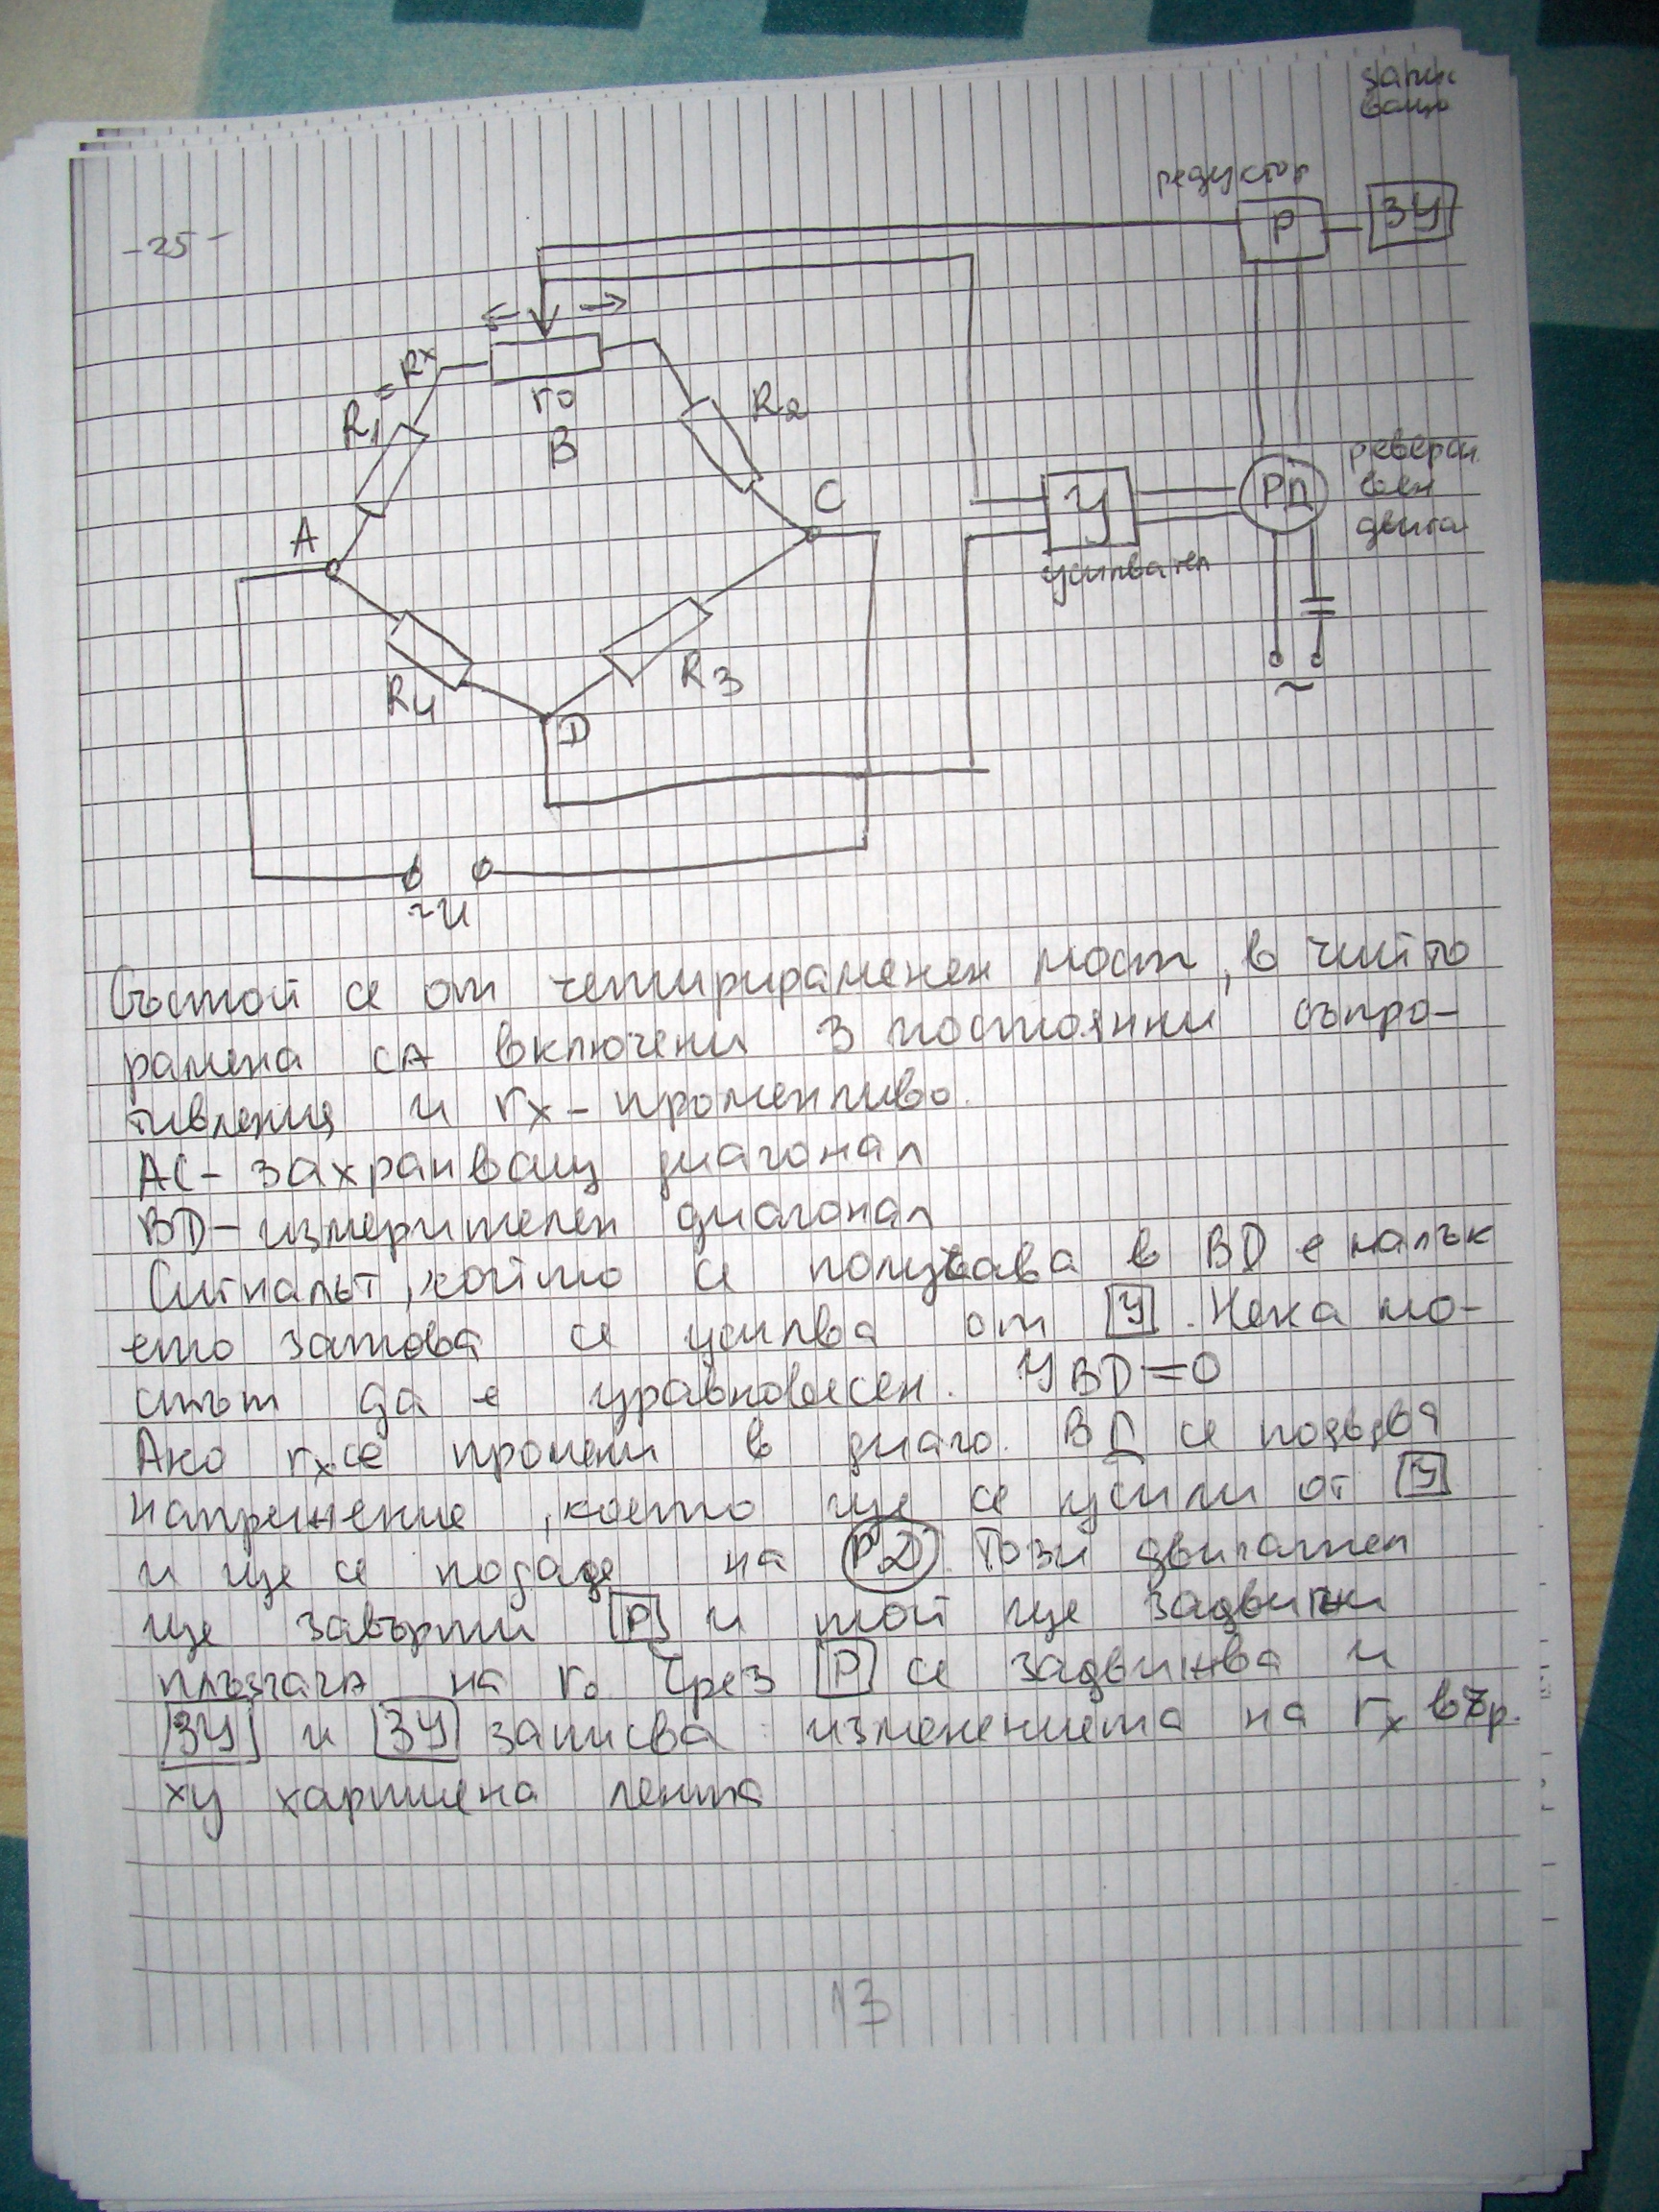 запис
ващо
редуктор
Р
ЗУ
-25-
R1=Rx
r0
B
R2
C
У
усилвател
РД
реверси
вен
двига
A
R4
R3
D
~
~U
Състой се от четирираменен мост, в чийто
рамена са включени 3 постоянни съпро-
тивления и rx - променливо.
AC - захранващ диагонал
BD - измерителен диагонал
Сигналът, който се получава в BD е малък
ето затова се усилва от У. Нека мо-
стът да е уравновесен. УBD=0
Ако rx се промени в диаго. ВД се появява
напрежение, което ще се усили от У
и ще се подаде на РД. Този двигател
ще завърти Р и той ще задвижи
плъзгача на r0 Чрез Р се задвижва и
ЗУ и ЗУ записва изменението на rx вър-
ху хартиена лента
13